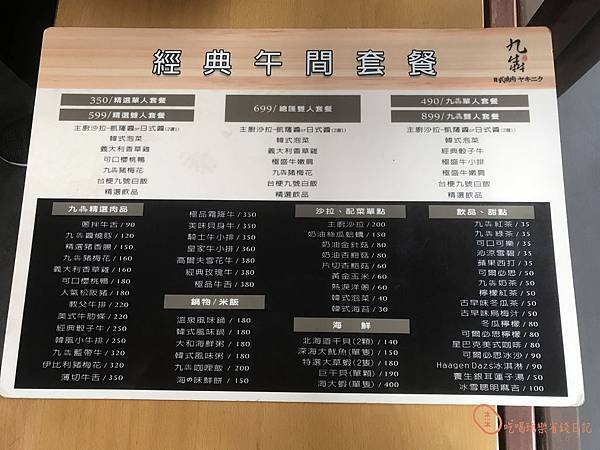 經典午間套餐
九犇
日式燒肉 ヤキニク
350/精選單人套餐
599/精選雙人套餐
主廚沙拉-凱薩醬or日式醬(2選1)
韓式泡菜
義大利香草雞
可口櫻桃鴨
九犇豬梅花
台梗九號白飯
精選飲品
699/總匯雙人套餐
主廚沙拉-凱薩醬or日式醬(2選1)
韓式泡菜
義大利香草雞
極盛牛嫩肩
九犇豬梅花
台梗九號白飯
精選飲品
490/九犇單人套餐
899/九犇雙人套餐
主廚沙拉-凱薩醬or日式醬(2選1)
韓式泡菜
經典骰子牛
極盛牛小排
極盛牛嫩肩
台梗九號白飯
精選飲品
九犇精選肉品
蔥拌牛舌/90
九犇醬燒豚/120
精選豬杏鮑/150
九犇豬梅花/160
義大利香草雞/160
可口櫻桃鴨/180
人氣松阪豬/180
教父牛排/220
美式牛肋條/220
經典骰子牛/250
韓風小牛排/250
九犇藍帶牛/320
伊比利豬梅花/320
薄切牛舌/350
極品霜降牛/350
美味貝身牛/350
騎士牛小排/350
皇家牛小排/360
高爾夫雪花牛/380
經典玫瑰牛/380
極品牛舌/580
鍋物/米飯
溫泉風味鍋/180
韓式風味鍋/180
大和海鮮粥/180
韓式風味粥/180
九犇咖哩飯/200
海の味鮮餅/150
沙拉、配菜單點
主廚沙拉/200
奶油絲瓜蛤蠣/150
奶油金針菇/80
奶油杏鮑菇/80
片切杏鮑菇/60
黃金玉米/60
熱淚洋蔥/60
韓式泡菜/40
韓式海苔/30
海鮮
北海道干貝(2顆)/140
深海大魷魚(單隻)/150
特選大草蝦(2隻)/180
巨干貝(單顆)/190
海大蝦(單隻)/400
飲品、甜點
九犇紅茶/35
九犇綠茶/35
可口可樂/35
沁涼雪碧/35
蘋果西打/35
可爾必思/50
九犇奶茶/50
檸檬紅茶/50
古早味冬瓜茶/50
古早味烏梅汁/50
冬瓜檸檬/80
可爾必思檸檬/80
星巴克美式咖啡/80
可爾必思冰沙/90
Häagen Dazs冰淇淋/90
養生銀耳蓮子湯/50
冰雪聰明麻吉/100
吃喝玩樂省錢日記